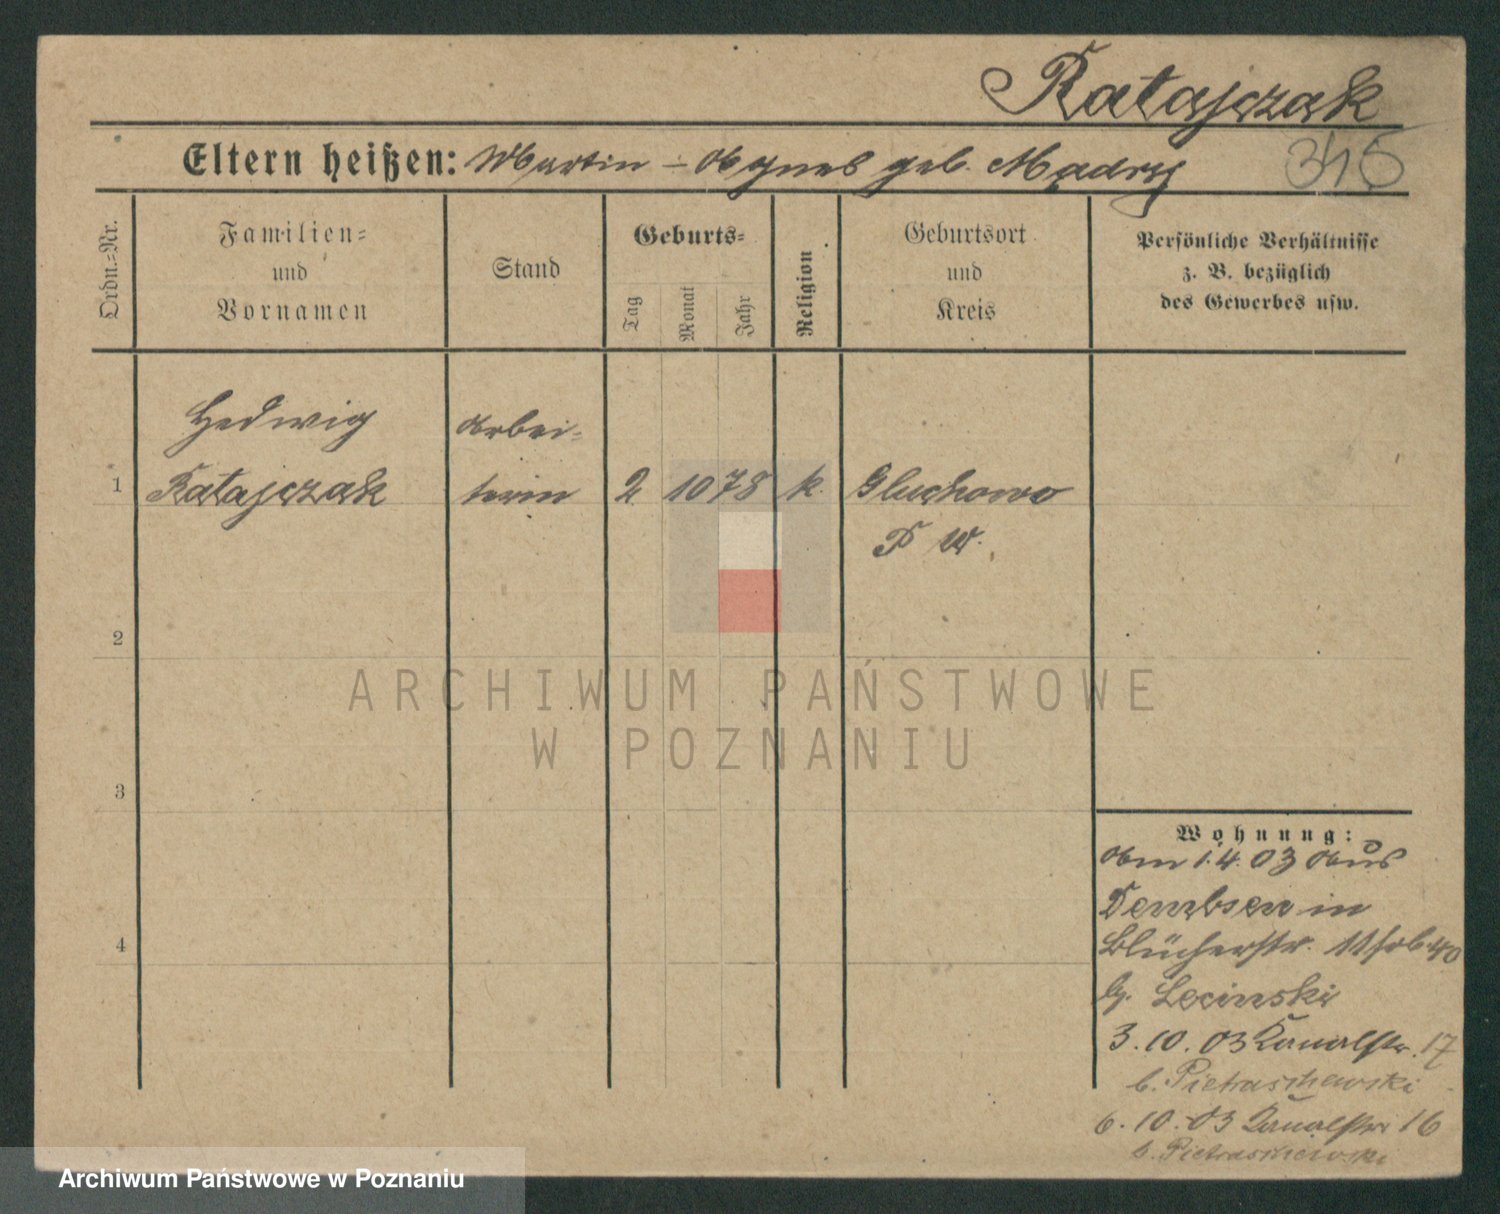 Ratajczak
Eltern heißen: Martin - Agnes geb. Mądry
345
Ordn.-Nr.
Familien-
und
Vornamen
Stand
Geburts-
Tag
Monat
Jahr
Religion
Geburtsort
und
Kreis
Persönliche Verhältnisse
z. B. bezüglich
des Gewerbes usw.
Hedwig
Arbei-
1 Ratajczak terin 2 10 78 k. Gluchowo
P W.
2
ARCHIWUM PAŃSTWOWE
W POZNANIU
3
Wohnung:
Am 1.4.03 aus
Dembsen in
4
Blücherstr. 11
b. Lecinski
3.10.03 Kanalstr. 17
b. Pietraschewski
6.10.03 Kanalstr 16
b. Pietraschewski
Archiwum Państwowe w Poznaniu